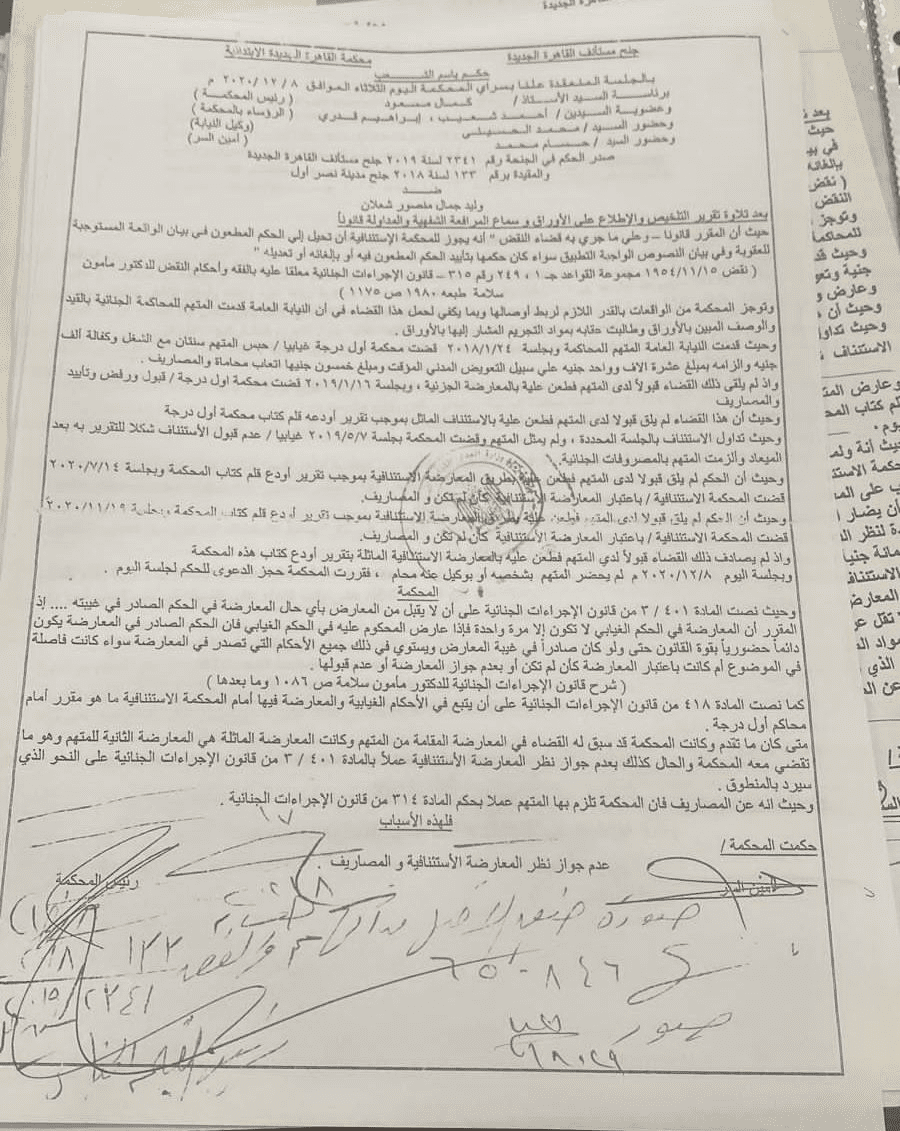 جنح مستأنف القاهرة الجديدة
محكمة القاهرة الجديدة الابتدائية
حكم باسم الشعب
بالجلسة المنعقدة علنا بسراي المحكمة اليوم الثلاثاء الموافق ٨ / ١٢ / ٢٠٢٠ م
برئاسة السيد الأستاذ / كمال مسعود ( رئيس المحكمة )
وعضوية السيدين / أحمد شعيب ، إبراهيم قدري ( الرؤساء بالمحكمة )
وحضور السيد / محمد الحسيني (وكيل النيابة)
وحضور السيد / حسام محمد ( أمين السر)
صدر الحكم في الجنحة رقم ٢٣٤١ لسنة ٢٠١٩ جنح مستأنف القاهرة الجديدة
والمقيدة برقم ١٣٣ لسنة ٢٠١٨ جنح مدينة نصر أول
ضـــد
وليد جمال منصور شعلان
بعد تلاوة تقرير التلخيص والإطلاع على الأوراق و سماع المرافعة الشفهية والمداولة قانوناً
حيث أن المقرر قانونا – وعلي ما جري به قضاء النقض " أنه يجوز للمحكمة الإستئنافية أن تحيل إلي الحكم المطعون في بيان الواقعة المستوجبة
للعقوبة وفي بيان النصوص الواجبة التطبيق سواء كان حكمها بتأييد الحكم المطعون فيه أو بإلغائه أو تعديله "
( نقض ١٩٥٤/١١/١٥ مجموعة القواعد جـ ١ ، ٢٤٩ رقم ٣١٥ – قانون الإجراءات الجنائية معلقا عليه بالفقه وأحكام النقض للدكتور مأمون
سلامة طبعه ١٩٨٠ ص ١١٧٥ )
وتوجز المحكمة من الواقعات بالقدر اللازم لربط أوصالها وبما يكفي لحمل هذا القضاء في أن النيابة العامة قدمت المتهم للمحاكمة الجنائية بالقيد
والوصف المبين بالأوراق وطالبت عقابه بمواد التجريم المشار إليها بالأوراق .
وحيث قدمت النيابة العامة المتهم للمحاكمة وبجلسة ٢٠١٨/١/٢٤ قضت محكمة أول درجة غيابيا / حبس المتهم سنتان مع الشغل وكفالة ألف
جنيه والزامه بمبلغ عشرة الاف وواحد جنيه علي سبيل التعويض المدني المؤقت ومبلغ خمسون جنيها اتعاب محاماة والمصاريف .
واذ لم يلقى ذلك القضاء قبولاً لدى المتهم فطعن علية بالمعارضة الجزئية ، وبجلسة ٢٠١٩/١/١٦ قضت محكمة أول درجة / قبول ورفض وتأييد
والمصاريف
وحيث أن هذا القضاء لم يلق قبولا لدى المتهم فطعن علية بالاستئناف الماثل بموجب تقرير أودعه قلم كتاب محكمة أول درجة
وحيث تداول الاستئناف بالجلسة المحددة ، ولم يمثل المتهم وقضت المحكمة بجلسة ٢٠١٩/٥/٧ غيابيا / عدم قبول الأستئناف شكلا للتقرير به بعد
الميعاد وألزمت المتهم بالمصروفات الجنائية.
وحيث أن الحكم لم يلق قبولا لدى المتهم فطعن علية بطريق المعارضة الإستئنافية بموجب تقرير أودع قلم كتاب المحكمة وبجلسة ٢٠٢٠/٧/١٤
قضت المحكمة الاستئنافية / باعتبار المعارضة الإستئنافية كأن لم تكن و المصاريف.
وحيث أن الحكم لم يلق قبولا لدى المتهم فطعن علية بطريق المعارضة الإستئنافية بموجب تقرير أودع قلم كتاب المحكمة وبجلسة ٢٠٢٠/١١/١٩
قضت المحكمة الاستئنافية / باعتبار المعارضة الإستئنافية كأن لم تكن و المصاريف.
واذ لم يصادف ذلك القضاء قبولاً لدي المتهم فطعن عليه بالمعارضة الاستئنافية الماثلة بتقرير أودع كتاب هذه المحكمة
وبجلسة اليوم ٢٠٢٠/١٢/٨ م لم يحضر المتهم بشخصه أو بوكيل عنه محام ، فقررت المحكمة حجز الدعوى للحكم لجلسة اليوم .
المحكمة
وحيث نصت المادة ٤٠١ / ٣ من قانون الإجراءات الجنائية على أن لا يقبل من المعارض بأي حال المعارضة في الحكم الصادر في غيبته .... إذ
المقرر أن المعارضة في الحكم الغيابي لا تكون إلا مرة واحدة فإذا عارض المحكوم عليه في الحكم الغيابي فان الحكم الصادر في المعارضة يكون
دائماً حضورياً بقوة القانون حتى ولو كان صادراً في غيبة المعارض ويستوي في ذلك جميع الأحكام التي تصدر في المعارضة سواء كانت فاصلة
في الموضوع أم كانت باعتبار المعارضة كأن لم تكن أو بعدم جواز المعارضة أو عدم قبولها .
( شرح قانون الإجراءات الجنائية للدكتور مأمون سلامة ص ١٠٨٦ وما بعدها )
كما نصت المادة ٤١٨ من قانون الإجراءات الجنائية على أن يتبع في الأحكام الغيابية والمعارضة فيها أمام المحكمة الاستئنافية ما هو مقرر أمام
محاكم أول درجة .
متى كان ما تقدم وكانت المحكمة قد سبق له القضاء في المعارضة المقامة من المتهم وكانت المعارضة الماثلة هي المعارضة الثانية للمتهم وهو ما
تقضي معه المحكمة والحال كذلك بعدم جواز نظر المعارضة الأستئنافية عملاً بالمادة ٤٠١ / ٣ من قانون الإجراءات الجنائية على النحو الذي
سيرد بالمنطوق .
وحيث انه عن المصاريف فان المحكمة تلزم بها المتهم عملا بحكم المادة ٣١٤ من قانون الإجراءات الجنائية .
فلهذه الأسباب
حكمت المحكمة /
عدم جواز نظر المعارضة الأستئنافية و المصاريف .
أمين السر
رئيس المحكمة